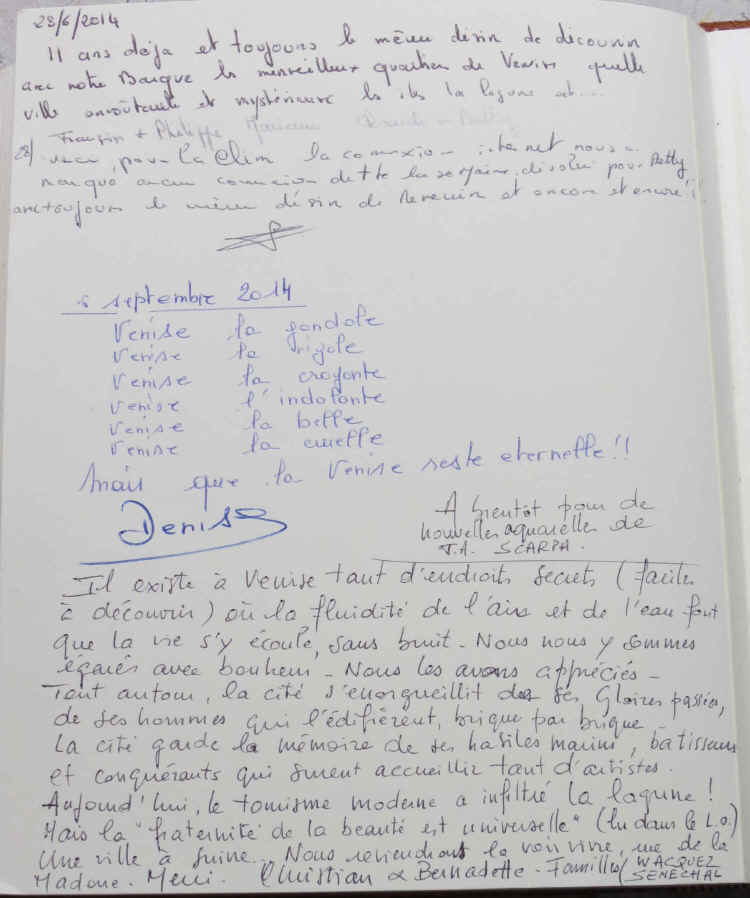 28/6/2014
11 ans déja et toujours le même désir de découvrir
avec notre Barque les merveilleux quartiers de Venise quelle
ville envoûtante et mystérieuse les iles la lagune et....
Philippe
28/ pour la Clim la connexion internet nous a
manqué aucune connexion dette la semaine, désolé pour Patty
avec toujours le même désir de Revenir et encore et encore!
6 septembre 2014
Venise la gondole
Venise la rigole
Venise la croyante
Venise l'indolente
Venise la belle
Venise la cruelle
Mais que la Venise reste eternelle!!
Denise
A bientôt pour de
nouvelles aquarelles de
T.A. SCARPA.
Il existe à Venise tant d'endroits secrets (faciles
à découvrir) où la fluidité de l'air et de l'eau font
que la vie s'y écoule, sans bruit - Nous nous y sommes
égarés avec bonheur - Nous les avons appréciés -
Tout autour, la cité s'enorgueillit de ses Gloires passées,
de ses hommes qui l'édifièrent, brique par brique -
La cité garde la mémoire de ses habiles marins, batisseurs
et conquérants qui surent accueillir tant d'artistes.
Aujourd'hui, le tourisme moderne a infiltré la lagune!
Mais la "fraternité de la beauté est universelle" (lu dans le L.O.)
Une ville à suivre... Nous reviendrons la voir vivre, rue de la
Madone. Merci. Christian & Bernadette - Familles WACQUEZ
SENECHAL